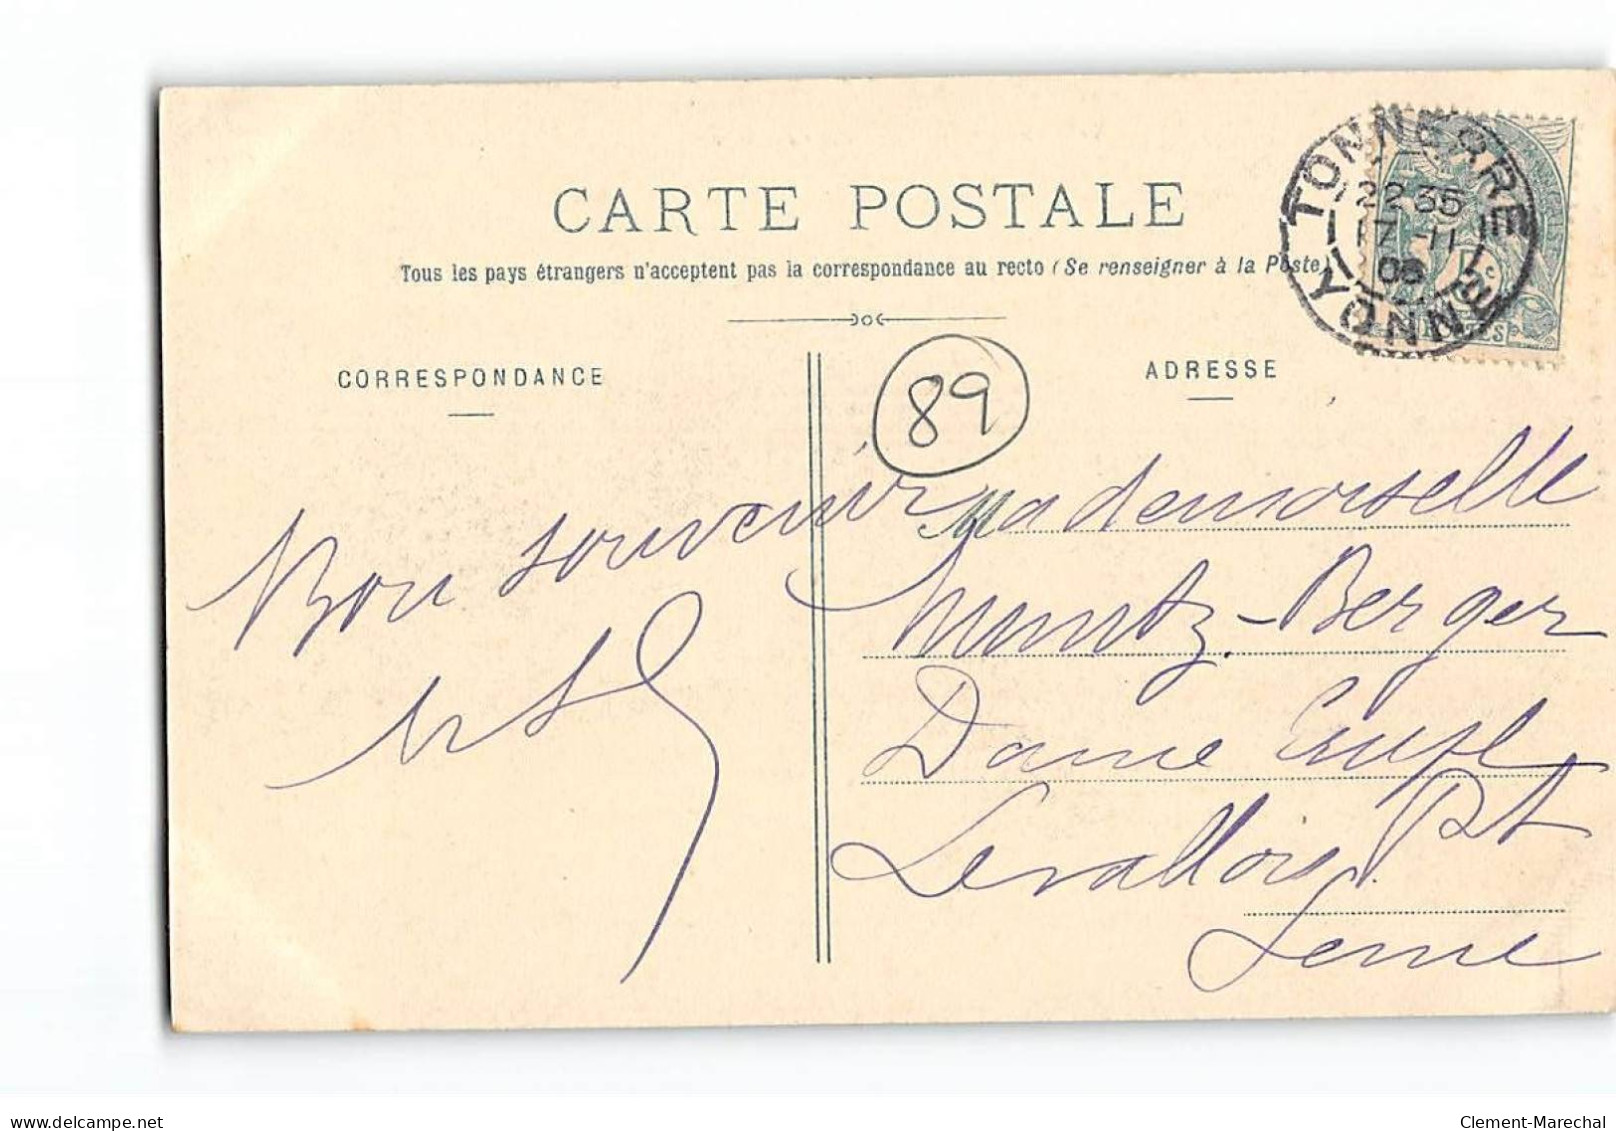 CARTE POSTALE
Tous les pays étrangers n'acceptent pas la correspondance au recto (Se renseigner à la Poste)
TONNERRE
22 35
17 11
YONNE
5c
CORRESPONDANCE
ADRESSE
89
Bon souvenir
Mademoiselle
Muntz-Berger
Dame Empl
Pt
Levallois P.
Seine
www.delcampe.net
Clement-Marechal